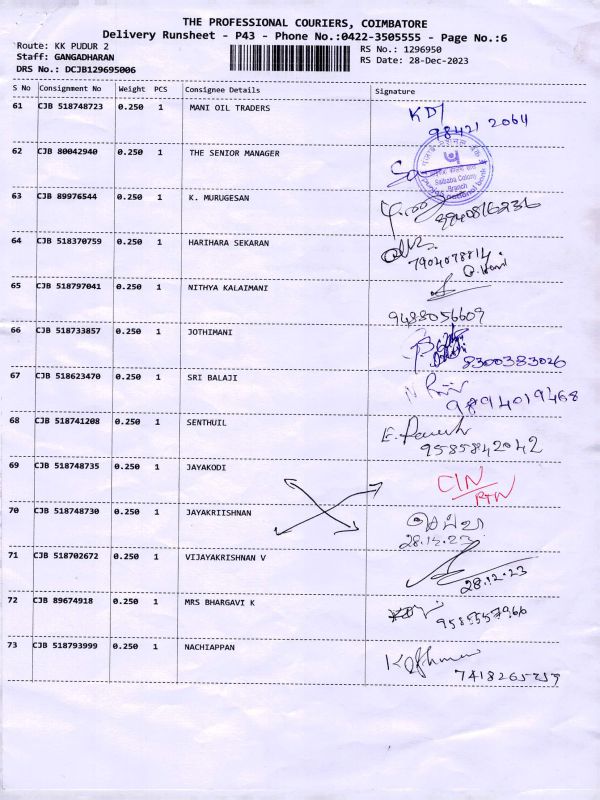 THE PROFESSIONAL COURIERS, COIMBATORE
Delivery Runsheet - P43 - Phone No.:0422-3505555 - Page No.:6
Route: KK PUDUR 2
Staff: GANGADHARAN
DRS No.: DCJB129695006
RS No.: 1296950
RS Date: 28-Dec-2023
S No Consignment No Weight PCS Consignee Details Signature
61 CJB 518748723 0.250 1 MANI OIL TRADERS
98421 2064
62 CJB 80042940 0.250 1 THE SENIOR MANAGER
Saibaba Colony
Branch
63 CJB 89976544 0.250 1 K. MURUGESAN
9940816236
64 CJB 518370759 0.250 1 HARIHARA SEKARAN
7904078814
65 CJB 518797041 0.250 1 NITHYA KALAIMANI
9488056609
66 CJB 518733857 0.250 1 JOTHIMANI
8300383026
67 CJB 518623470 0.250 1 SRI BALAJI
9894019468
68 CJB 518741208 0.250 1 SENTHUIL
9585842042
69 CJB 518748735 0.250 1 JAYAKODI
CIN
RTN
70 CJB 518748730 0.250 1 JAYAKRIISHNAN
28.12.23
71 CJB 518702672 0.250 1 VIJAYAKRISHNAN V
28.12.23
72 CJB 89674918 0.250 1 MRS BHARGAVI K
73 CJB 518793999 0.250 1 NACHIAPPAN